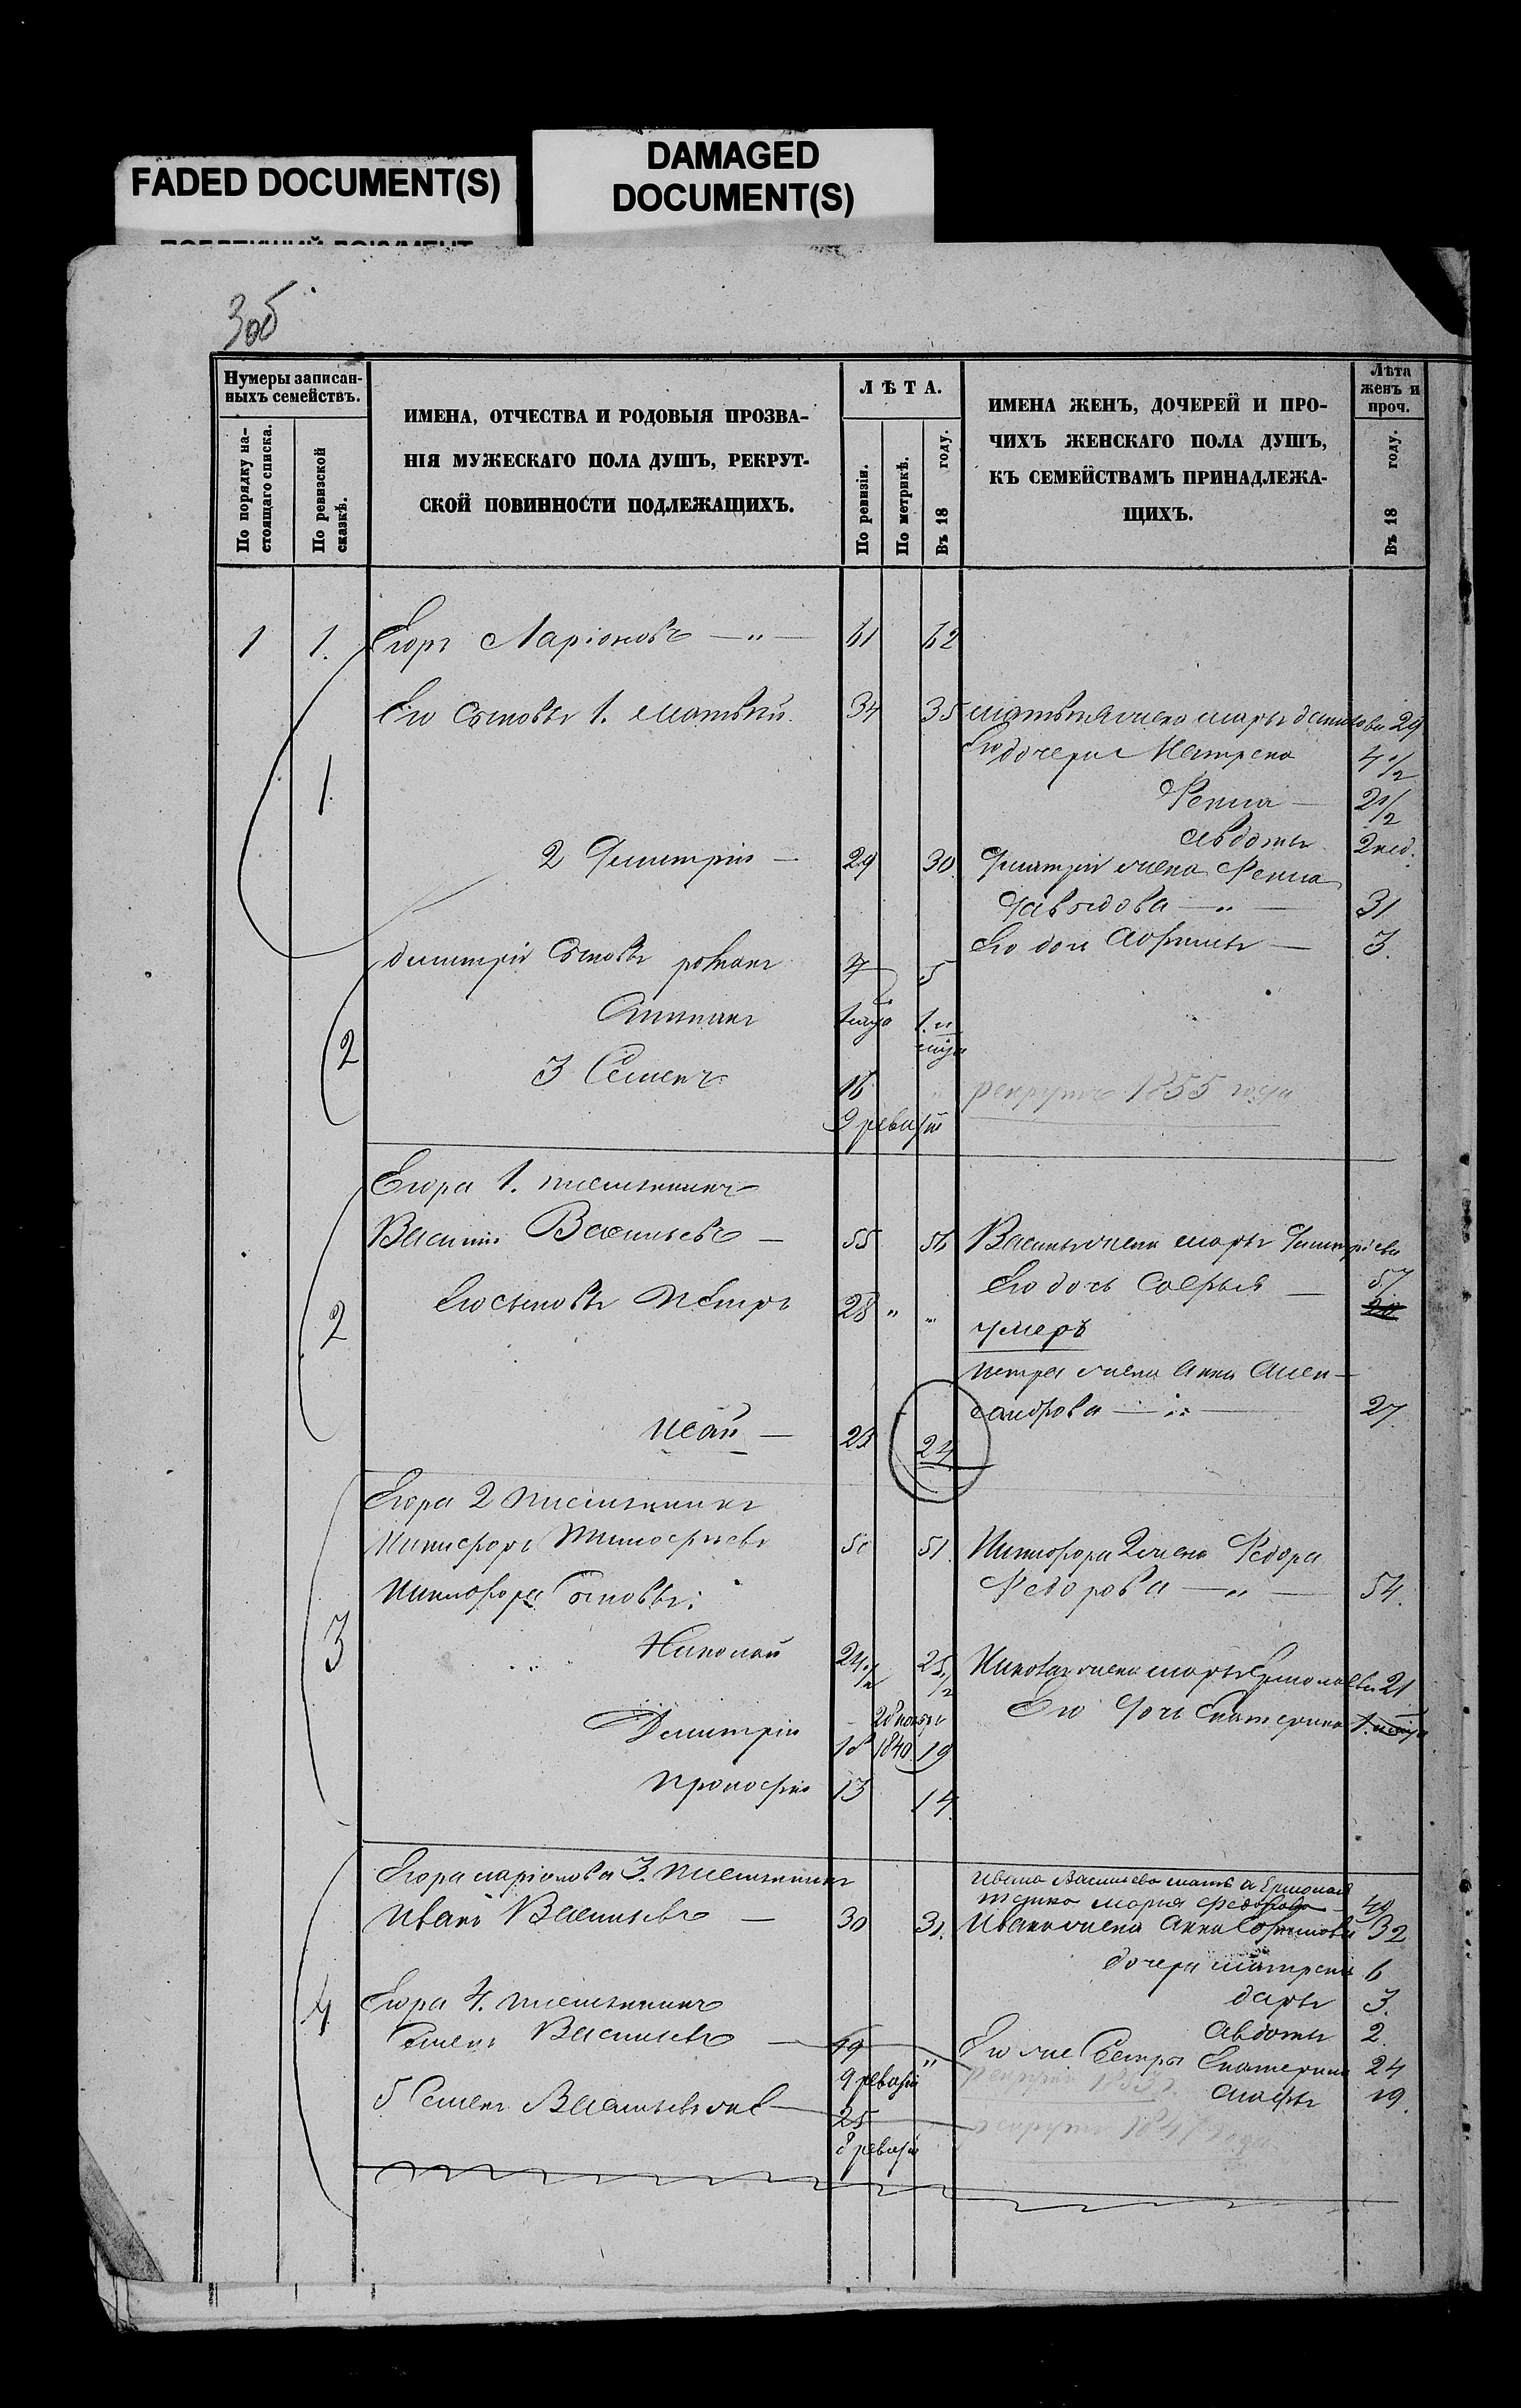 FADED DOCUMENT(S)
DAMAGED
DOCUMENT(S)
3об
Нумеры записан-
ныхъ семействъ.
По порядку на-
стоящаго списка.
По ревизской
сказкѣ.
ИМЕНА, ОТЧЕСТВА И РОДОВЫЯ ПРОЗВА-
НІЯ МУЖЕСКАГО ПОЛА ДУШЪ, РЕКРУТ-
СКОЙ ПОВИННОСТИ ПОДЛЕЖАЩИХЪ.
ЛѢТА.
По ревизіи.
По метрикѣ.
Въ 18 году.
ИМЕНА ЖЕНЪ, ДОЧЕРЕЙ И ПРО-
ЧИХЪ ЖЕНСКАГО ПОЛА ДУШЪ,
КЪ СЕМЕЙСТВАМЪ ПРИНАДЛЕЖА-
ЩИХЪ.
Лѣта
женъ и
проч.
Въ 18 году.
1 1. Егоръ Ларіоновъ — „ — 61 62
Его сыновья 1. Матвѣй 34 35 Матвѣя жена Марья 29
Его дочери Матрена 4 1/2
1. Фекла — 2 1/2
Авдотья 2 нед.
2 Дмитрій — 29 30 Дмитрія жена Фекла
Давыдова — „ — 31
Его дочь — 3.
Дмитрія сыновья Романъ 4 5
2
3 Семенъ 16 „ рекрутъ 1855 года
9 ревизіи
Егора 1. племянникъ
Василій Васильевъ — 55 56 Василья жена Марья Дмитріева
57
Его дочь Софья — 20
2 Его сыновья Петръ 28 „ „ умеръ
Петра жена Анна Алек-
сандрова — „ — 27
Исай — 23 24
Егора 2 племянникъ
Никифоръ Тимофеевъ 50 51 Никифора 2 жена Федора
Федорова — „ — 54.
3 Никифора сыновья:
Николай 24 1/2 25 1/2 Николая жена Марья Ермолаева 21
Его дочь Екатерина
Дмитрій 18 1840 19
Прокофій 13 14
Егора Ларіонова 3. племянникъ
Ивана Васильева мать
Марья Федорова — 49
Иванъ Васильевъ — 30 31. Ивана жена Анна 32
дочери Матрена 6
Дарья 3.
4 Егора 4. племянникъ Авдотья 2
Семенъ Васильевъ — 19 „ Его же сестры Екатерина 24
9 ревизіи
Марфа 19.
5 Семенъ Васильевъ же — 25
8 ревизіи